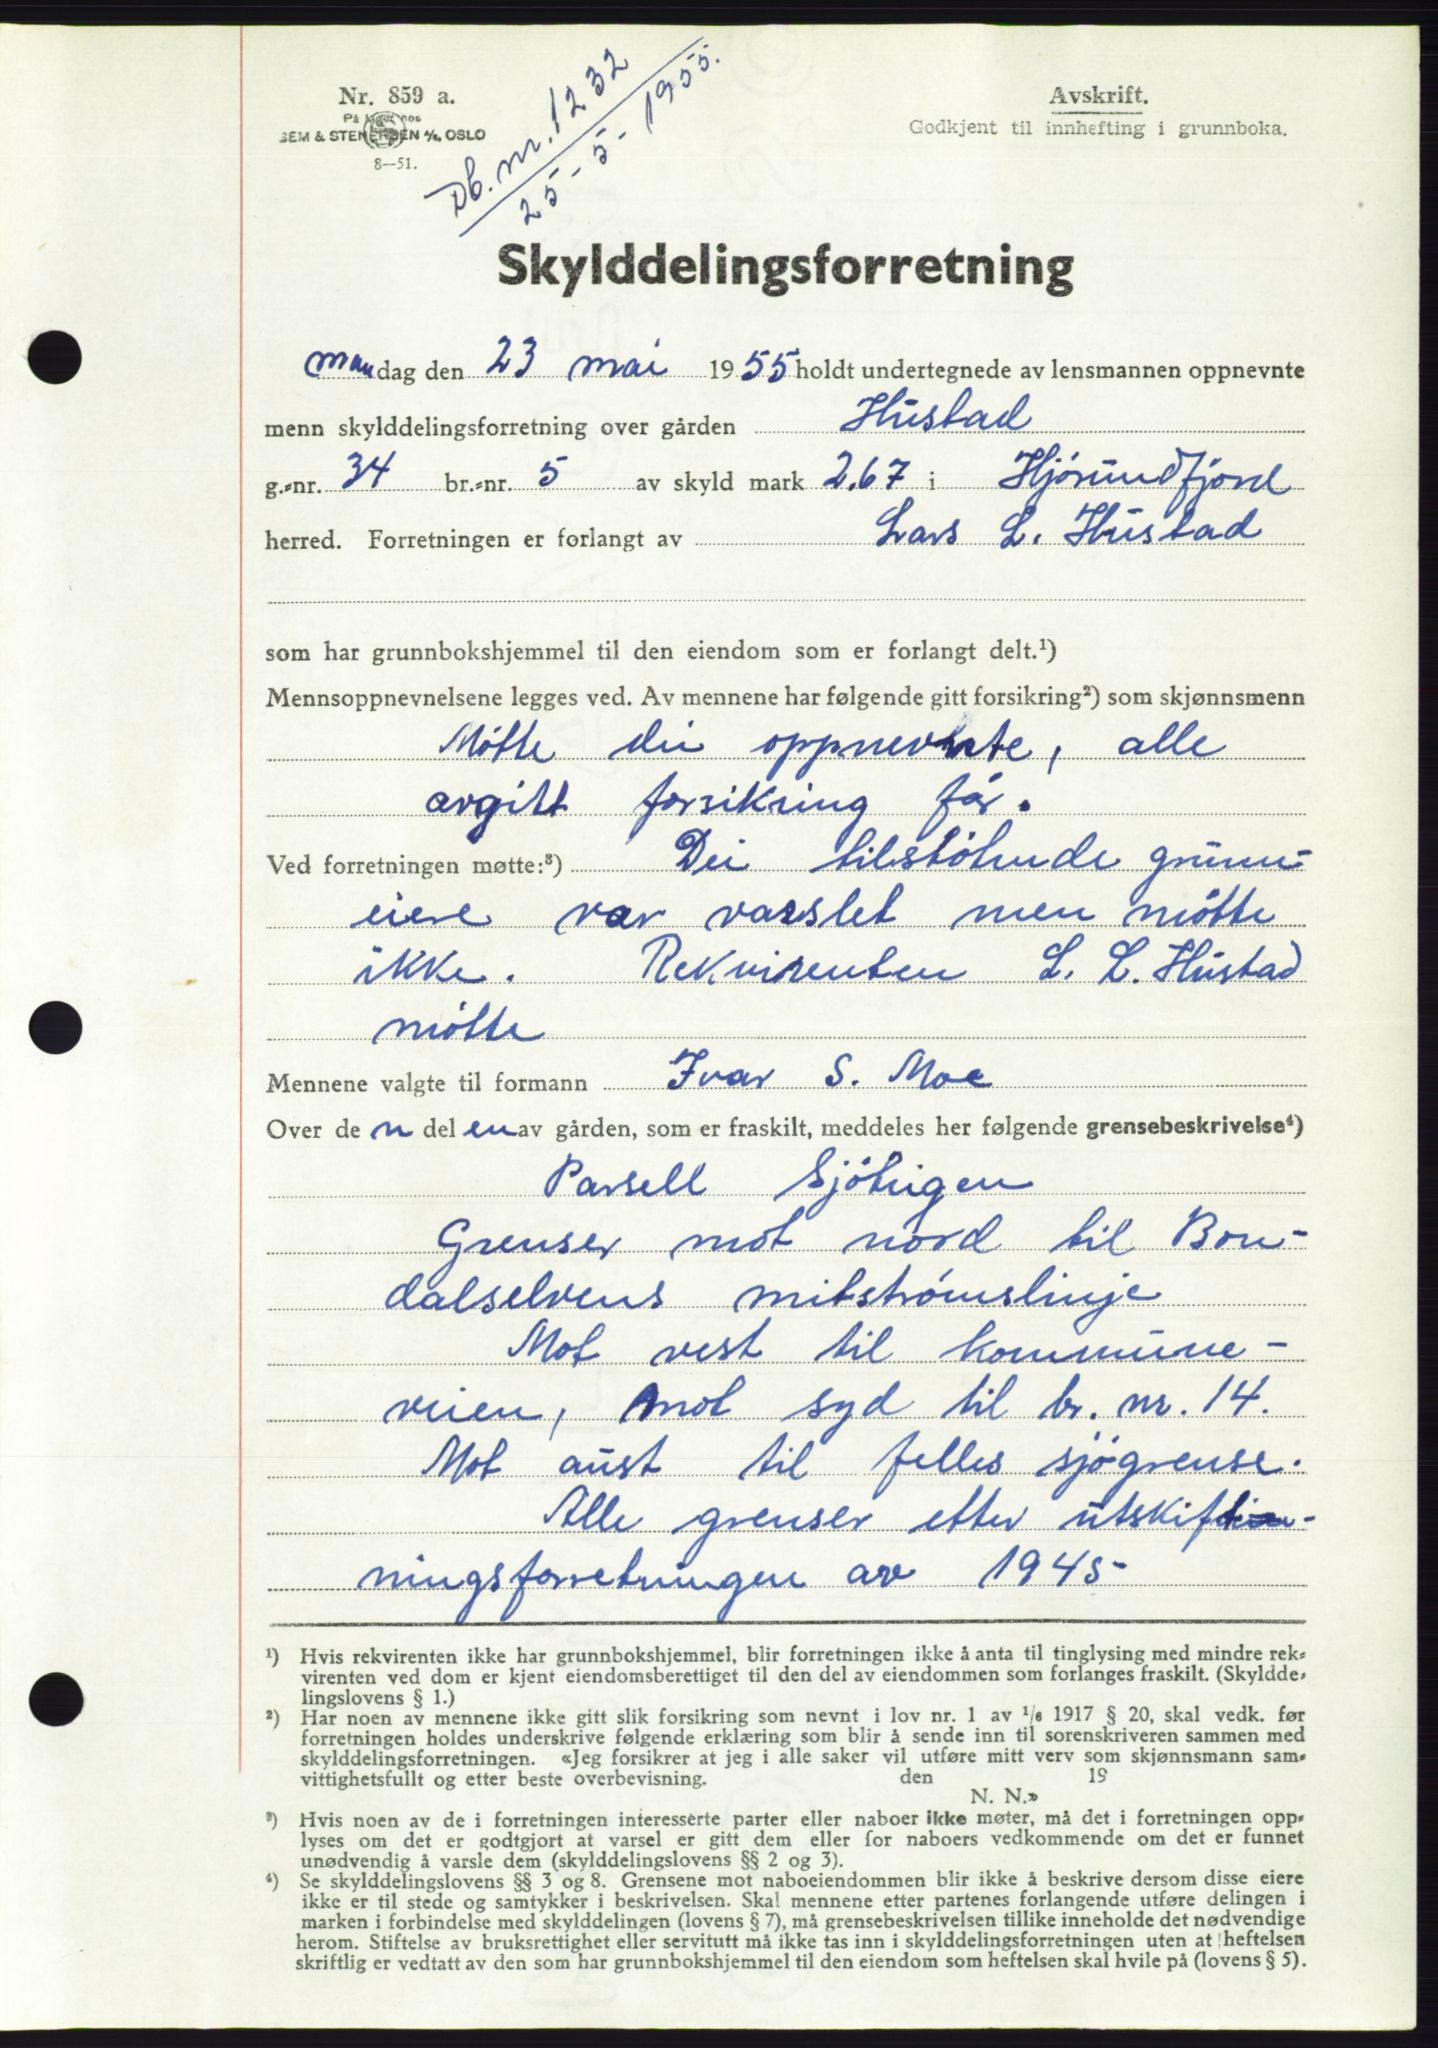 Nr. 859 a.
På lager hos
SEM & STENERSEN A/S, OSLO
8—51.
Db. nr. 1232
25-5-1955.
Avskrift.
Godkjent til innhefting i grunnboka.
Skylddelingsforretning
mandag den 23 mai 1955 holdt undertegnede av lensmannen oppnevnte
menn skylddelingsforretning over gården Hustad
g.-nr. 34 br.-nr. 5 av skyld mark 2.67 i Hjørundfjord
herred. Forretningen er forlangt av Lars L. Hustad
som har grunnbokshjemmel til den eiendom som er forlangt delt.¹)
Mennsoppnevnelsene legges ved. Av mennene har følgende gitt forsikring²) som skjønnsmenn
Møtte dei oppnevnte, alle
avgitt forsikring før.
Ved forretningen møtte:³) Dei tilstøtende grunn-
eiere var varslet men møtte
ikke. Rekvirenten L. L. Hustad
møtte
Mennene valgte til formann Ivar S. Moe
Over de n del en av gården, som er fraskilt, meddeles her følgende grensebeskrivelse⁴)
Parsell
Grenser mot nord til Bon-
dalselvens mitstrømslinje
Mot vest til kommune-
veien, mot syd til br. nr. 14.
Mot aust til felles sjøgrense.
Alle grenser etter utskift-
ningsforretningen av 1945-
¹) Hvis rekvirenten ikke har grunnbokshjemmel, blir forretningen ikke å anta til tinglysing med mindre rek-
virenten ved dom er kjent eiendomsberettiget til den del av eiendommen som forlanges fraskilt. (Skyldde-
lingslovens § 1.)
²) Har noen av mennene ikke gitt slik forsikring som nevnt i lov nr. 1 av 1/6 1917 § 20, skal vedk. før
forretningen holdes underskrive følgende erklæring som blir å sende inn til sorenskriveren sammen med
skylddelingsforretningen. «Jeg forsikrer at jeg i alle saker vil utføre mitt verv som skjønnsmann sam-
vittighetsfullt og etter beste overbevisning. den 19
N. N.»
³) Hvis noen av de i forretningen interesserte parter eller naboer ikke møter, må det i forretningen opp-
lyses om det er godtgjort at varsel er gitt dem eller for naboers vedkommende om det er funnet
unødvendig å varsle dem (skylddelingslovens §§ 2 og 3).
⁴) Se skylddelingslovens §§ 3 og 8. Grensene mot naboeiendommen blir ikke å beskrive dersom disse eiere
ikke er til stede og samtykker i beskrivelsen. Skal mennene etter partenes forlangende utføre delingen i
marken i forbindelse med skylddelingen (lovens § 7), må grensebeskrivelsen tillike inneholde det nødvendige
herom. Stiftelse av bruksrettighet eller servitutt må ikke tas inn i skylddelingsforretningen uten at heftelsen
skriftlig er vedtatt av den som har grunnbokshjemmel til den eiendom som heftelsen skal hvile på (lovens § 5).